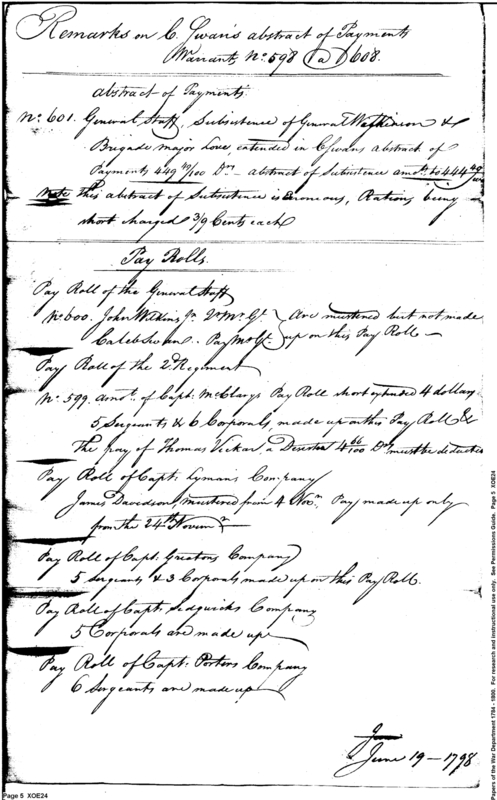 Remarks on C. Swan's abstract of Payments
Warrants No. 598 a 608.
abstract of Payments.
No. 601. General Staff, Subsistence of General Wilkinson &
Brigade major Love, extended in C Swans abstract of
Payments 449 49/100 Drs. abstract of Subsistence amots. to 444 49/100
Note This abstract of Subsistence is Eroneous, Rations being
short charged 3/9 Cents each
Pay Rolls.
Pay Roll of the General Staff
No. 600. John Wilkins Jr. Qr. Mr. Gl. } Are mustered but not made
Caleb Swan .. Pay Mr. Gl. } up on this Pay Roll —
Pay Roll of the 2d. Regiment
No. 599. amot. of Capt. McClarys Pay Roll short extended 4 dollars
5 Sergeants & 6 Corporals made up on this Pay Roll &
The pay of Thomas Vickar, a Deserter 4 66/100 Drs. must be deducted
Pay Roll of Capt. Lymans Company
James Davidson, mustered from 4 Novr. Pay made up only
from the 24th Novemr.
Pay Roll of Capt. Greatons Company
5 Sergeants & 3 Corporals made up on this Pay Roll.
Pay Roll of Capt. Sedgwicks Company
5 Corporals are made up
Pay Roll of Capt. Porters Company
6 Sergeants are made up
June 19 - 1798
Page 5 XOE24
Papers of the War Department 1784 - 1800. For research and instructional use only. See Permissions Guide. Page 5 XOE24